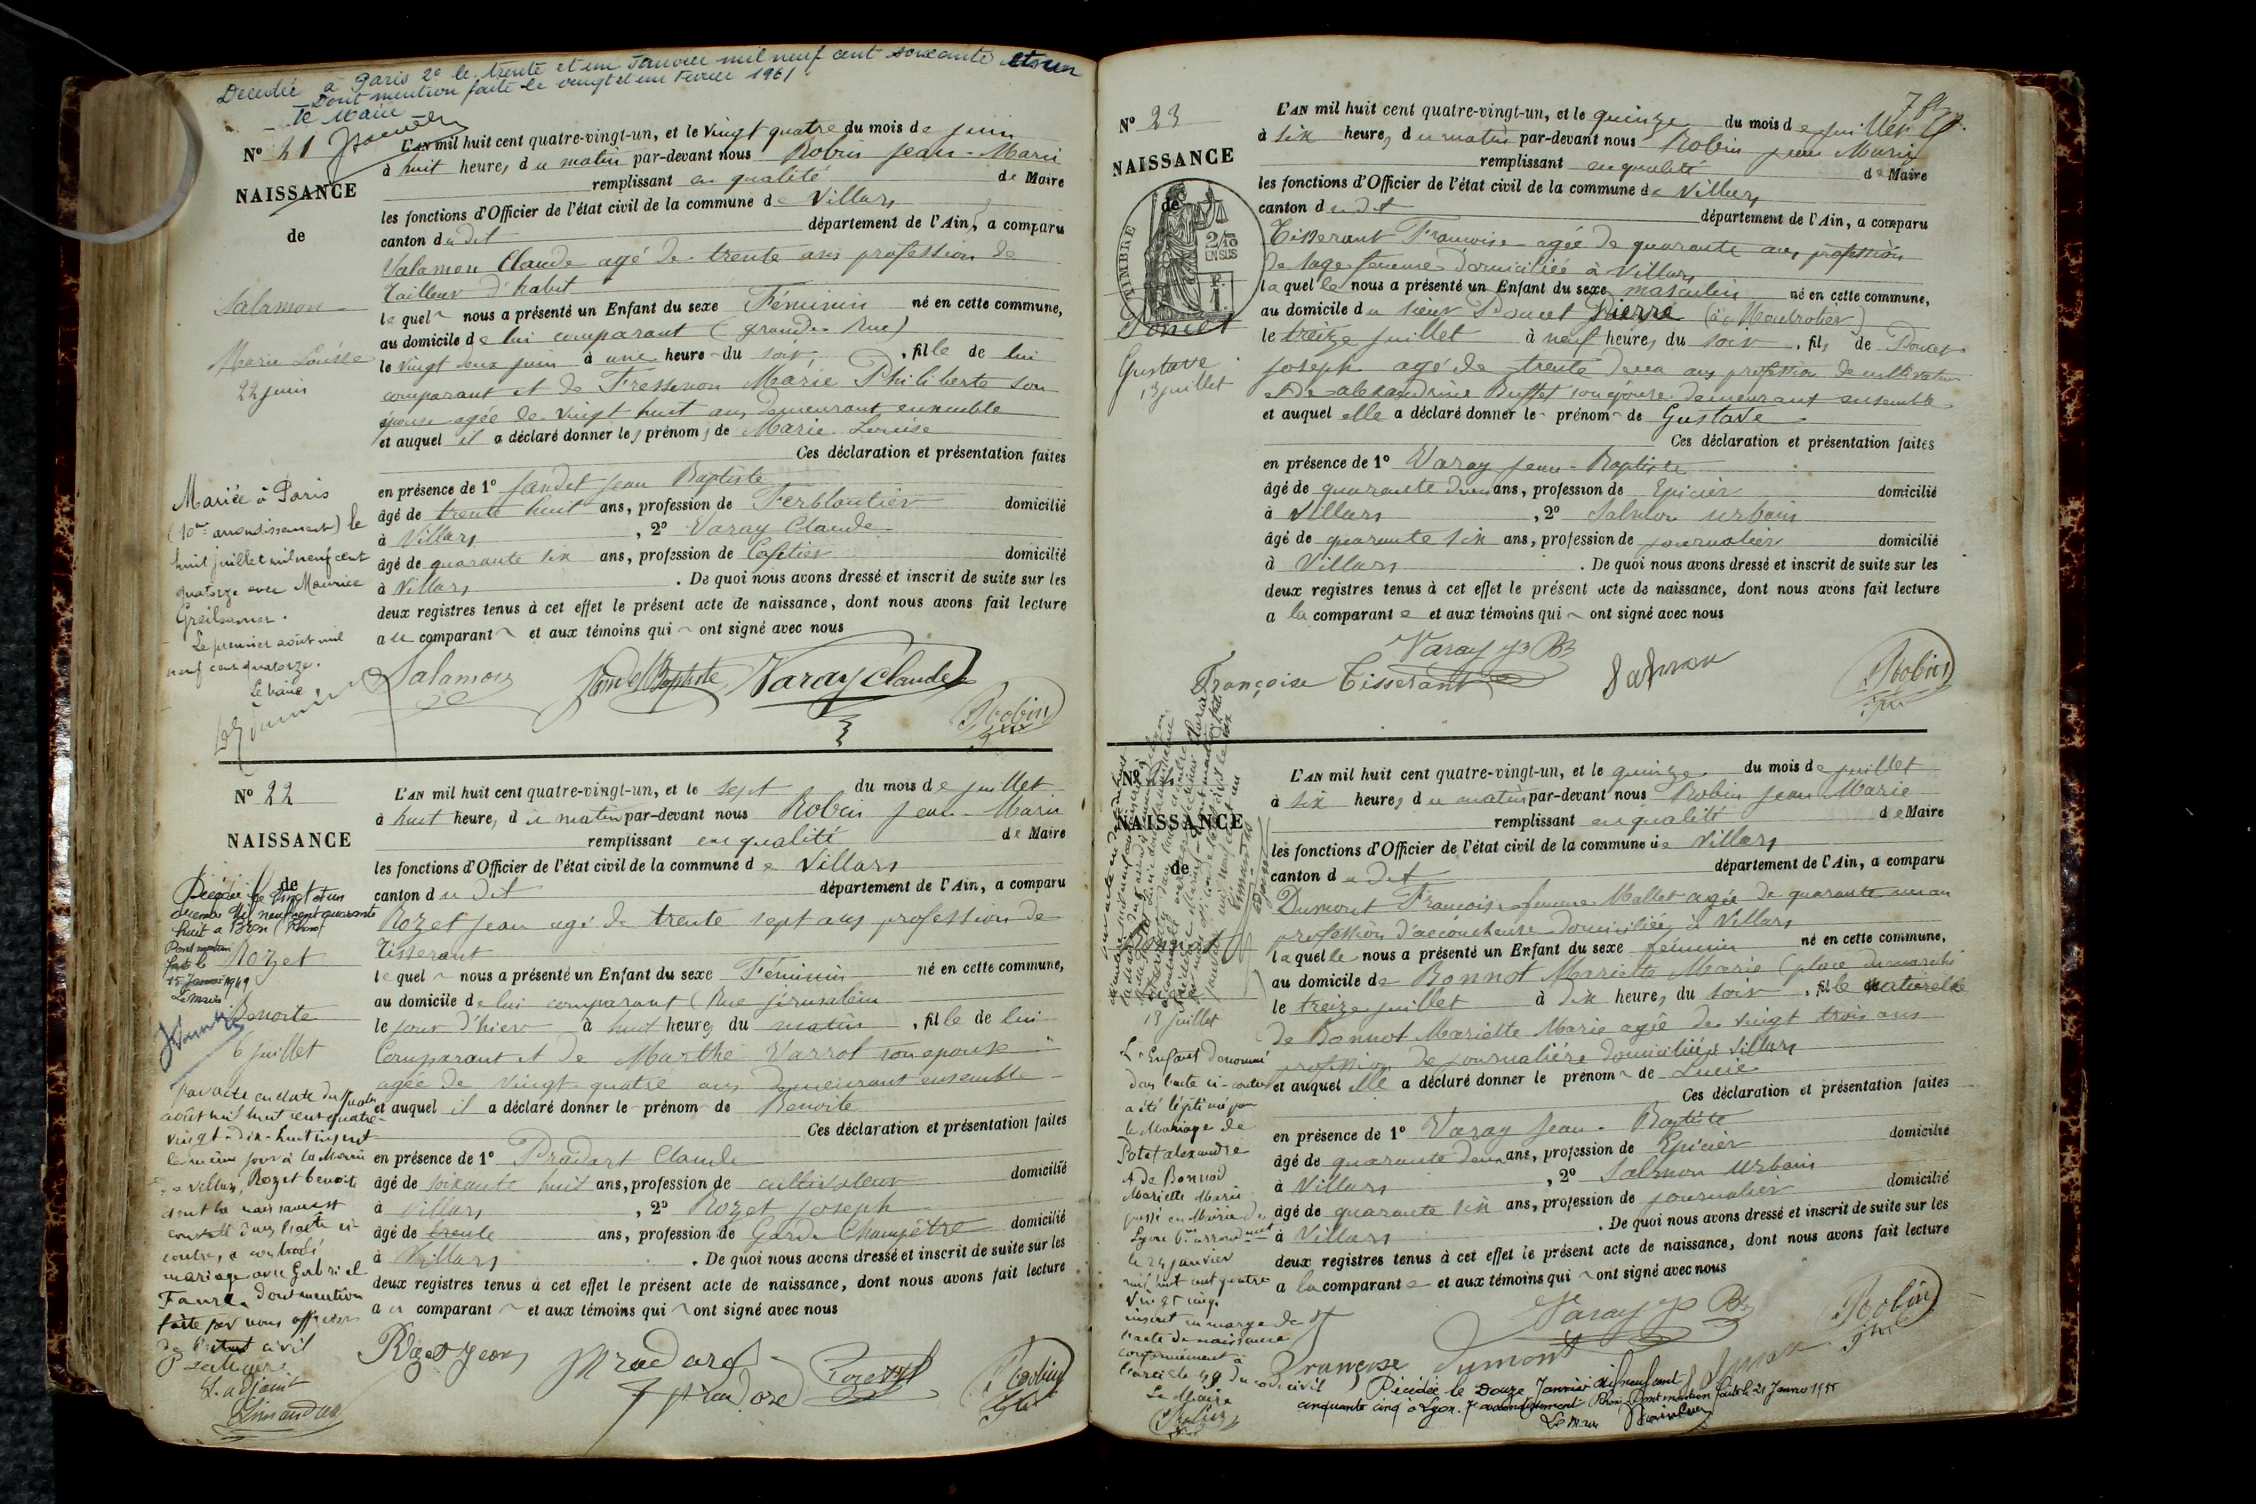 Decedée à Paris 2e le trente et un Janvier mil neuf cent soixante et un
Dont mention faite le vingt et un Fevrier 1961
Le Maire
N° 21
NAISSANCE
de
Salamon
Marie Louise
22 juin
L'AN mil huit cent quatre-vingt-un, et le vingt quatre du mois de juin
à huit heures du matin par-devant nous Robin Jean-Marie
remplissant en qualité de Maire
les fonctions d'Officier de l'état civil de la commune de Villars
canton dudit département de l'Ain, a comparu
Salamon Claude agé de trente ans profession de
Tailleur d'habit
lequel nous a présenté un Enfant du sexe Féminin né en cette commune,
au domicile de lui comparant (grande rue)
le vingt deux juin à une heure du soir, fille de lui
comparant et de Marie Philiberte son
épouse agée de vingt huit ans demeurant ensemble
et auquel il a déclaré donner les prénoms de Marie Louise
Ces déclaration et présentation faites
en présence de 1° Jandet Jean Baptiste
âgé de trente huit ans, profession de Ferblantier domicilié
à Villars, 2° Varay Claude
âgé de quarante six ans, profession de Cafetier domicilié
à Villars. De quoi nous avons dressé et inscrit de suite sur les
deux registres tenus à cet effet le présent acte de naissance, dont nous avons fait lecture
au comparant et aux témoins qui ont signé avec nous
Salamon Jandet Baptiste Varay Claude Robin
Mariée à Paris
(10me arrondissement) le
huit juillet mil neuf cent
quatorze avec Maurice
Le premier août mil
neuf cent quatorze.
Le Maire
N° 22
NAISSANCE
de
Rozet
Benoite
6 juillet
Décédée le vingt et un
mil neuf cent quarante
huit a Bron (Rhône)
Dont mention
faite le
15 Janvier 1949
Le Maire
L'AN mil huit cent quatre-vingt-un, et le sept du mois de juillet
à huit heures, du matin par-devant nous Robin Jean-Marie
remplissant en qualité de Maire
les fonctions d'Officier de l'état civil de la commune de Villars
canton dudit département de l'Ain, a comparu
Rozet Jean agé de trente sept ans profession de
Tisserant
lequel nous a présenté un Enfant du sexe Féminin né en cette commune,
au domicile de lui comparant (Rue Jérusalem
le jour d'hier à huit heures du matin, fille de lui
Comparant et de Marthe Varrot son épouse
agée de vingt-quatre ans demeurant ensemble
et auquel il a déclaré donner le prénom de Benoite
Ces déclaration et présentation faites
en présence de 1° Pradart Claude
âgé de soixante huit ans, profession de cultivateur domicilié
à Villars, 2° Rozet Joseph
âgé de trente ans, profession de Garde Champêtre domicilié
à Villars. De quoi nous avons dressé et inscrit de suite sur les
deux registres tenus à cet effet le présent acte de naissance, dont nous avons fait lecture
au comparant et aux témoins qui ont signé avec nous
Rozet Jean Robin
Par acte en date du
août mil huit cent quatre-
vingt-dix-huit inscrit
le même jour à la Mairie
de Villars, Rozet benoite
dont la naissance est
constatée dans l'acte ci-
contre, a contracté
mariage avec Gabriel
Faure, dont mention
faite par nous officier
de l'état civil
L'adjoint
N° 23
NAISSANCE
de
TIMBRE
2/10
EN SUS
Poncet
Gustave
13 juillet
7 f
L'AN mil huit cent quatre-vingt-un, et le quinze du mois de juillet
à six heures du matin par-devant nous Robin Jean Marie
remplissant en qualité de Maire
les fonctions d'Officier de l'état civil de la commune de Villars
canton dudit département de l'Ain, a comparu
Tisserant Francoise agée de quarante ans, profession
de sage femme domiciliée à Villars
laquelle nous a présenté un Enfant du sexe masculin né en cette commune,
au domicile du sieur Poncet Pierre
le treize juillet à neuf heures du soir, fils de Poncet
Joseph agé de trente deux ans profession de cultivateur
et de alexandrine Buffet son épouse demeurant ensemble
et auquel elle a déclaré donner le prénom de Gustave
Ces déclaration et présentation faites
en présence de 1° Varay Jean-Baptiste
âgé de quarante deux ans, profession de Epicier domicilié
à Villars, 2° Salmon urbain
âgé de quarante six ans, profession de journalier domicilié
à Villars. De quoi nous avons dressé et inscrit de suite sur les
deux registres tenus à cet effet le présent acte de naissance, dont nous avons fait lecture
a la comparante et aux témoins qui ont signé avec nous
Varay J Bte
Françoise Tisserant Salmon Robin
N°
NAISSANCE
de
Bonnot
13 juillet
L'AN mil huit cent quatre-vingt-un, et le quinze du mois de juillet
à six heures du matin par-devant nous Robin Jean Marie
remplissant en qualité de Maire
les fonctions d'Officier de l'état civil de la commune de Villars
canton dudit département de l'Ain, a comparu
Dumont Francoise femme Mallet agée de quarante un an
profession d'accoucheuse domiciliée à Villars
laquelle nous a présenté un Enfant du sexe féminin né en cette commune,
au domicile de Bonnot Mariette Marie (place du marché
le treize juillet à dix heures du soir, fille naturelle
de Bonnot Mariette Marie agée de vingt trois ans
profession de journalière domiciliée Villars
et auquel elle a déclaré donner le prénom de Lucie
Ces déclaration et présentation faites
en présence de 1° Varay Jean-Baptiste
âgé de quarante deux ans, profession de Epicier domicilié
à Villars, 2° Salmon Urbain
âgé de quarante six ans, profession de journalier domicilié
à Villars. De quoi nous avons dressé et inscrit de suite sur les
deux registres tenus à cet effet le présent acte de naissance, dont nous avons fait lecture
a la comparante et aux témoins qui ont signé avec nous
Varay J Bte Robin
Françoise Dumont
L'Enfant dénommé
dans l'acte ci-contre
a été légitimé par
le Mariage de
Potet alexandre
et de Bonnod
Mariette Marie
passé en Mairie de
Lyon 6e arrondmt
le 24 janvier
mil huit cent quatre
vingt cinq.
inscrit en marge de
l'acte de naissance
conformément à
l'article 49 du code civil
Le Maire
Robin
Décédée le Douze Janvier mil neuf cent
cinquante cinq a Lyon. 7e arrondissement Rhône Dont mention faite le 21 Janvier 1955
Le Maire